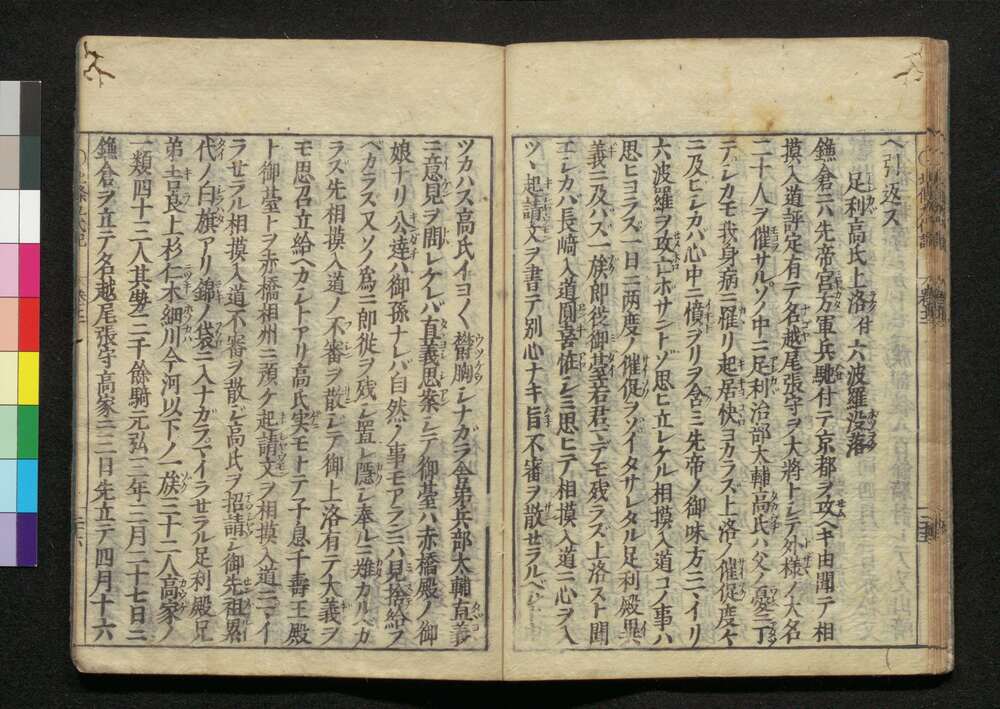 ヘ引返ス
足利高氏上洛付六波羅没落
鎌倉ニハ先帝宮方軍兵馳付テ京都ヲ攻ヘキ由聞テ相
摸入道評定有テ名越尾張守ヲ大将トシテ外様ノ大名
二十人ヲ催サルソノ中ニ足利治部大輔高氏ハ父ノ憂ニ丁
テシカモ我身病ニ罹リ起居快ヨカラズ上洛ノ催促度々
ニ及ヒシカバ心中ニ憤フリヲ含ミ先帝ノ御味方ニマイリ
六波羅ヲ攻ホロボサントゾ思ヒ立レケル相摸入道コノ事ハ
思ヒヨラズ一日ニ両度ノ催促ヲゾイタサレタル足利殿異
義ニ及バズ一族郎従御臺若君マデモ残ラズ上洛スト聞
エシカバ長﨑入道圓喜恠シミ思ヒテ相摸入道ニ心ヲ入
ツヽ起請文ヲ書テ別心ナキ旨不審ヲ散セラルベシ
ツカハス高氏イヨ〱欝胸シナガラ舎弟兵部大輔直義
ニ意見ヲ問レケレバ直義思案シテ御臺ハ赤橋殿ノ御
娘ナリ公達ハ御孫ナレバ自然ノ事モアランニハ見捨給フ
ベカラズ又ソノ為ニ郎従ヲ残シ置シ隠シ奉ルニ難カルベカ
ラズ先相摸入道ノ不審ヲ散シテ御上洛有テ大義ヲ
モ思召立給ヘカシトアリ高氏実モトテ子息千壽王殿
ト御臺トヲ赤橋相州ニ預ケ起請文ヲ相摸入道ニマイ
ラセラル相摸入道不審ヲ散シ高氏ヲ招請シ御先祖累
代ノ白旗アリ錦ノ袋ニ入ナガラマイラセラル足利殿兄
弟吉良上杉仁木細川今河以下ノ一族三十二人高家ノ
一類四十三人其勢三千餘騎元弘三年三月二十七日ニ
鎌倉ヲ立テ名越尾張守高家ニ三日先立テ四月十六